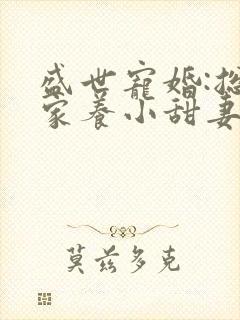 盛世寵婚:
家養小甜妻
莫茲多克